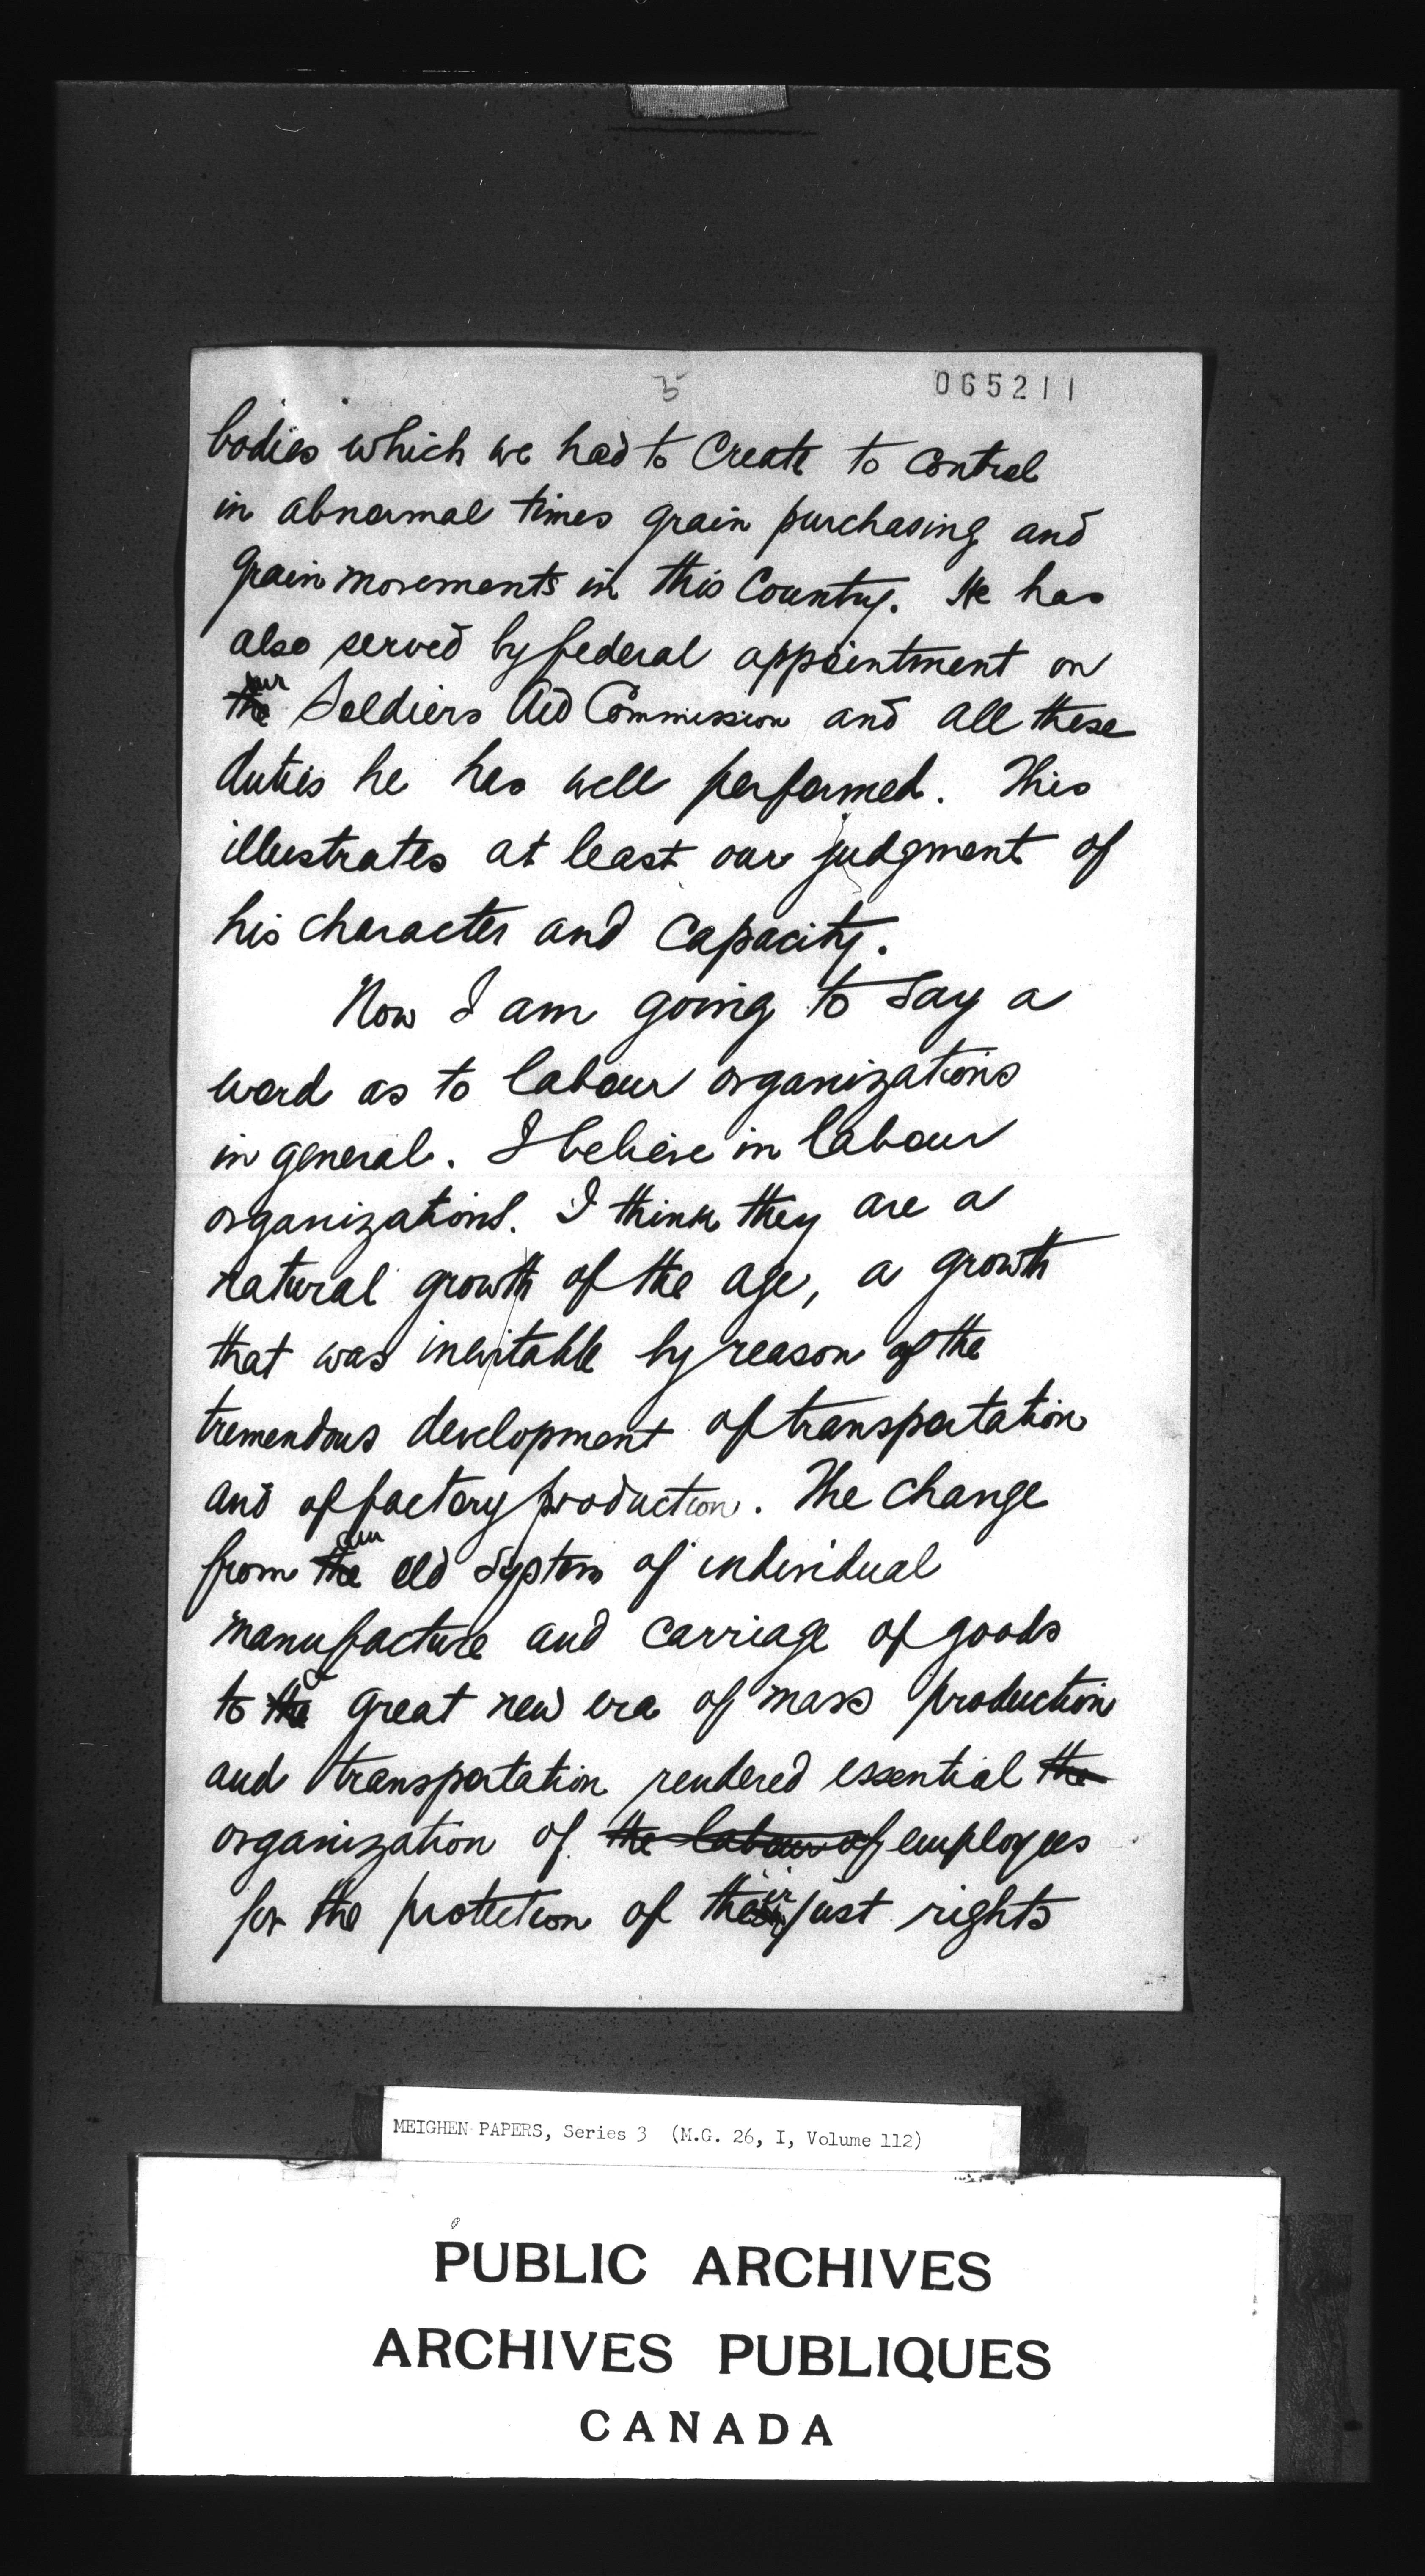 5
065211
bodies which we had to create to control
in abnormal times grain purchasing and
grain movements in this Country. He has
also served by federal appointment on
our
the Soldiers Aid Commission and all these
duties he has well performed. This
illustrates at least our judgment of
his character and capacity.
Now I am going to say a
word as to labour organizations
in general. I believe in labour
organizations. I think they are a
natural growth of the age, a growth
that was inevitable by reason of the
tremendous development of transportation
and of factory production. The change
from the old system of individual
manufacture and carriage of goods
a
to the great new era of mass production
and transportation rendered essential the
organization of the labour of employees
for the protection of their just rights
MEIGHEN PAPERS, Series 3 (M.G. 26, I, Volume 112)
PUBLIC ARCHIVES
ARCHIVES PUBLIQUES
CANADA